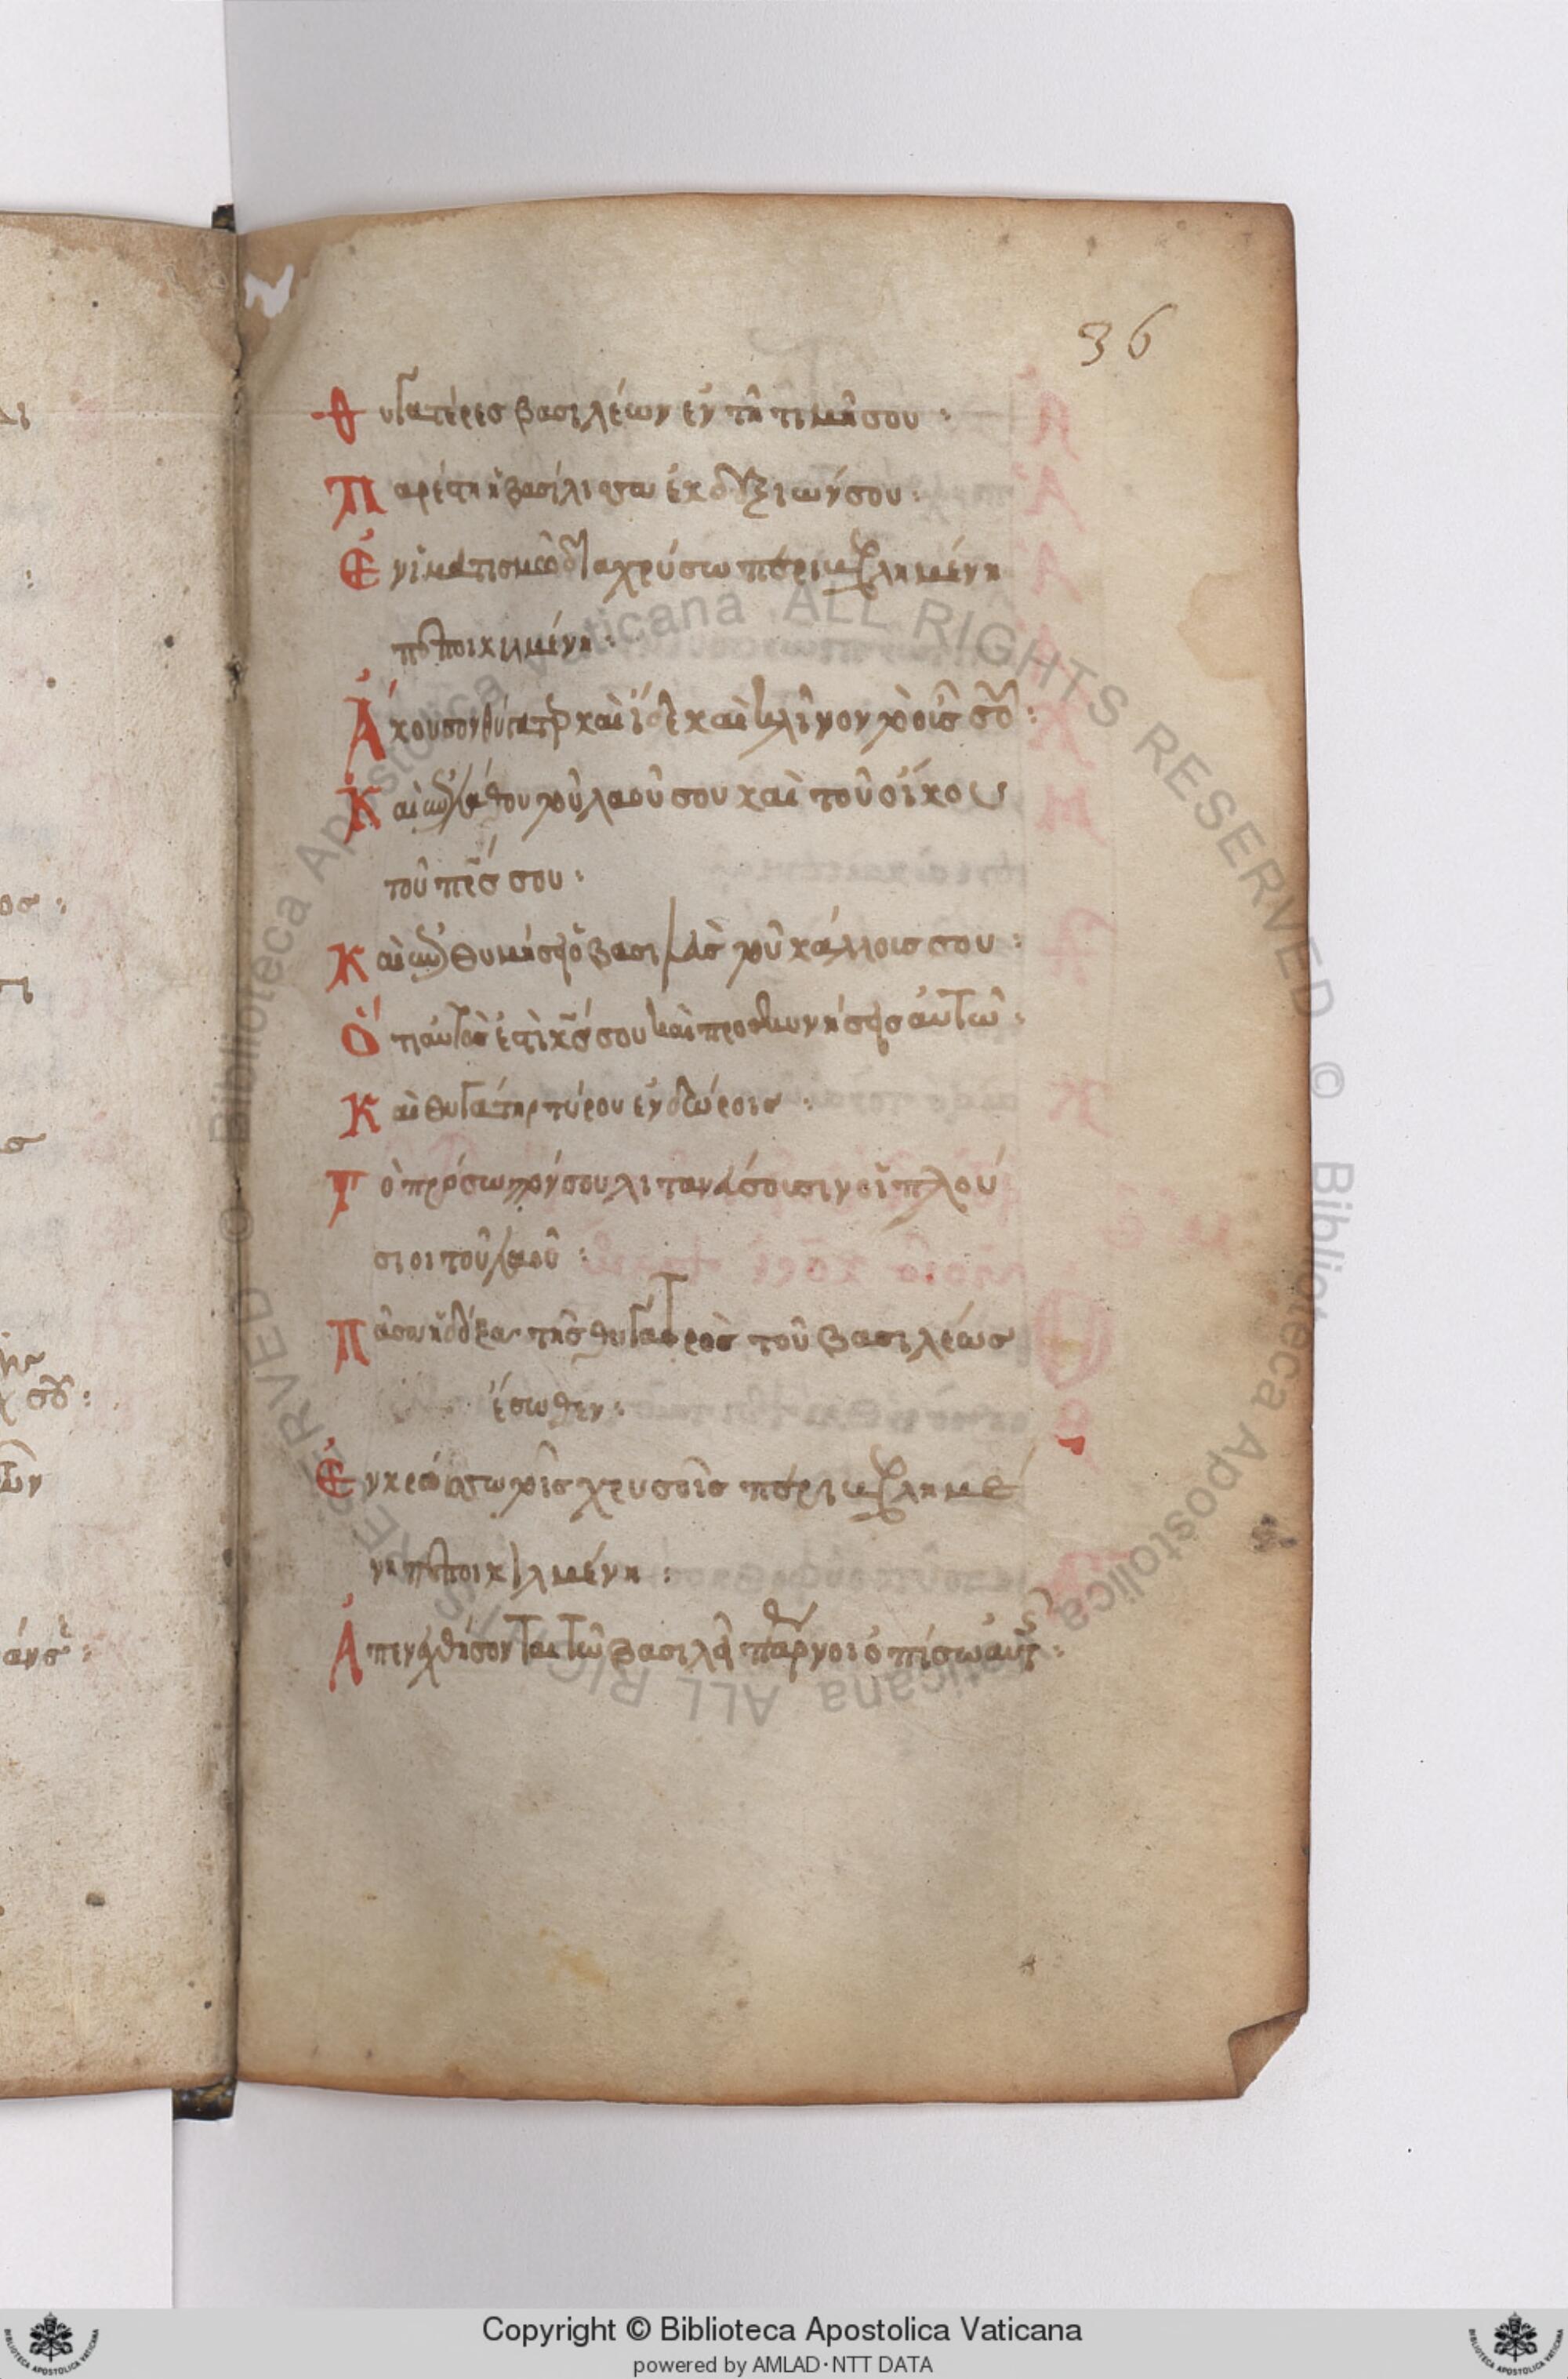 36
Θυγατέρες βασιλέων ἐν τῆ τιμῆ σου :
Παρέστη ἡ βασίλισσα ἐκ δεξιῶν σου :
Ἐν ἱματισμῶ διαχρύσω περιβεβλημένη
πεποικιλμένη :
Ἄκουσον θύγατερ καὶ ἴδε καὶ κλῖνον τὸ οὖς σου :
Καὶ ἐπιλάθου τοῦ λαοῦ σου καὶ τοῦ οἴκου
τοῦ πρς σου :
Καὶ ἐπιθυμήσει ὁ βασιλεὺς τοῦ κάλλους σου :
Ὅτι αὐτός ἐστι κς σου καὶ προσκυνήσεις αὐτῶ :
Καὶ θυγάτηρ τύρου ἐν δώροις :
Τὸ πρόσωπόν σου λιτανεύσουσιν οἱ πλού
σιοι τοῦ λαοῦ :
Πᾶσα ἡ δόξα τῆς θυγατρὸς τοῦ βασιλέως
ἔσωθεν :
Ἐν κροσσωτοῖς χρυσοῖς περιβεβλημέ
νη πεποικιλμένη :
Ἀπενεχθήσονται τῶ βασιλεῖ παρθένοι ὀπίσω αὐτῆς :
Copyright © Biblioteca Apostolica Vaticana
powered by AMLAD·NTT DATA